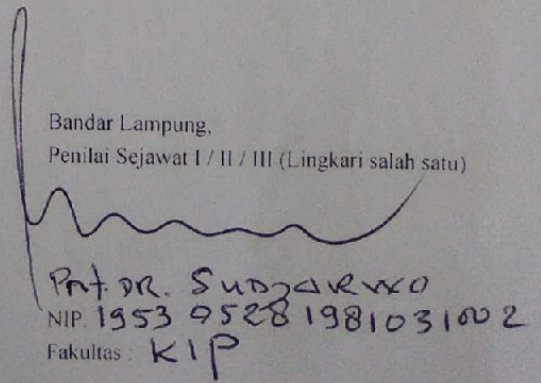 Bandar Lampung,
Penilai Sejawat I / II / III (Lingkari salah satu)
Prof. DR. SUDJARWO
NIP. 1953 0528 198103 1002
Fakultas : KIP